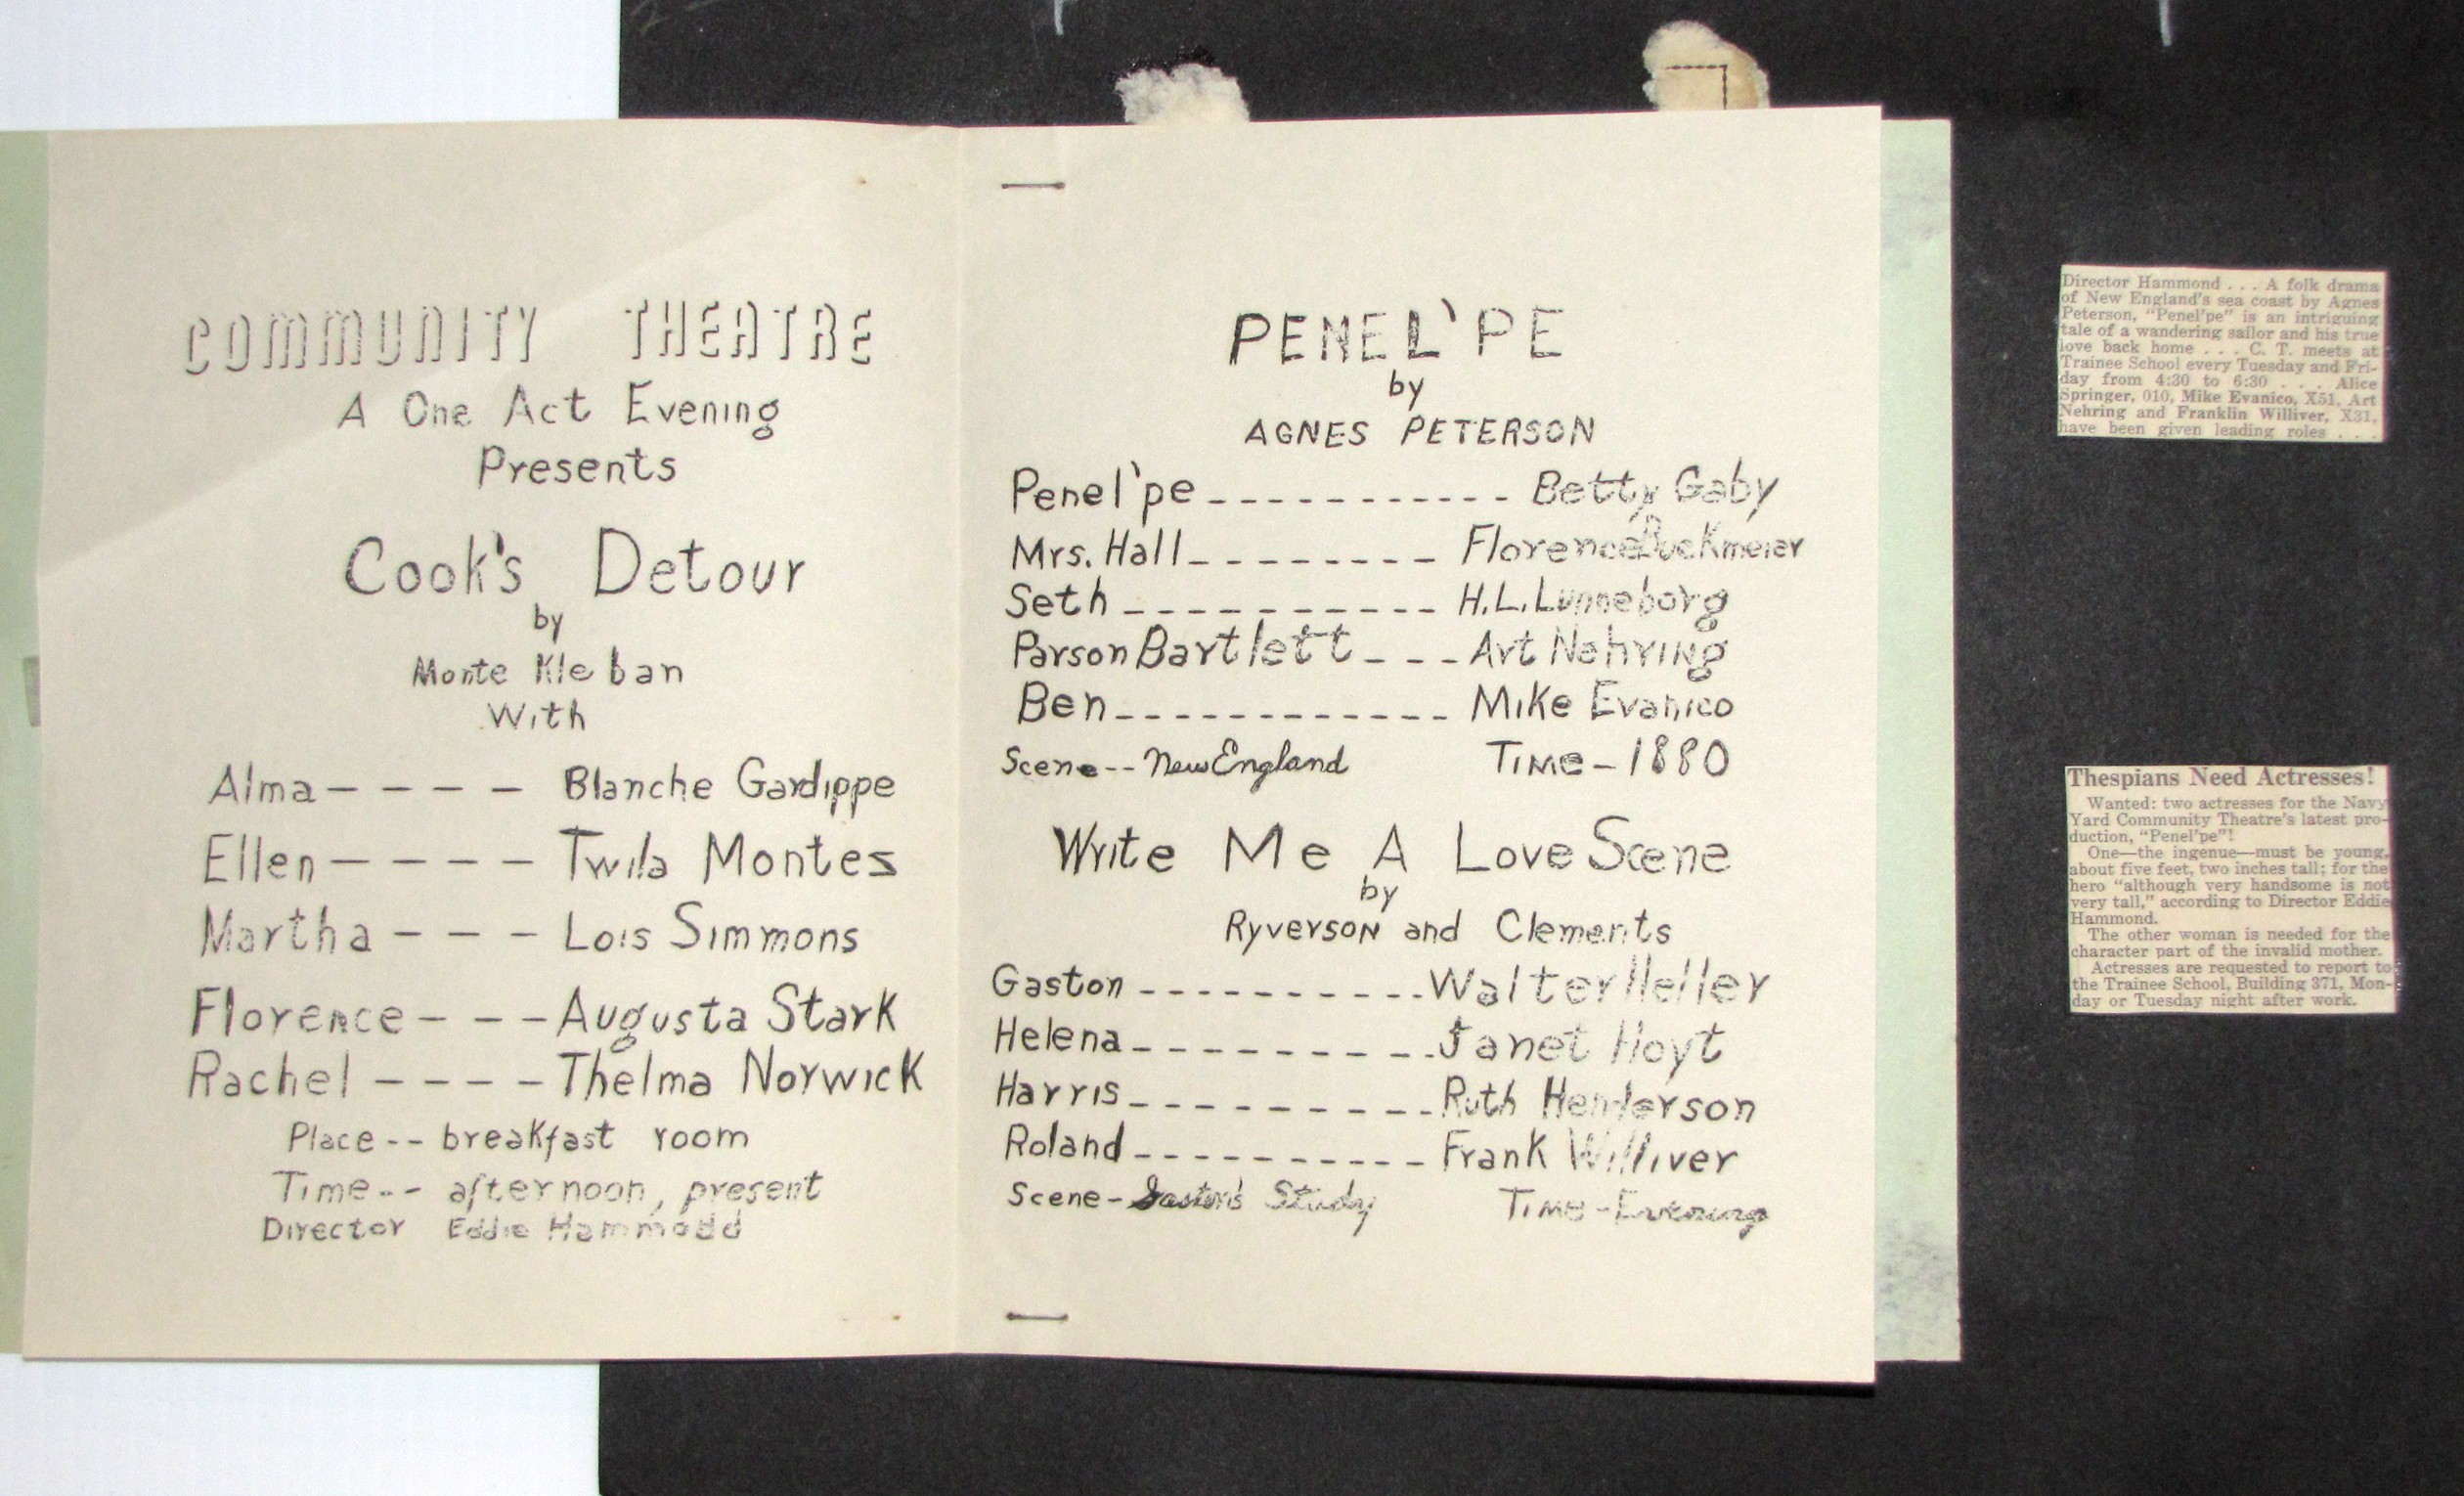 COMMUNITY THEATRE
A One Act Evening
Presents
Cook's Detour
by
Monte Kleban
With
Alma - - - - Blanche Gardippe
Ellen - - - - Twila Montes
Martha - - - Lois Simmons
Florence - - - Augusta Stark
Rachel - - - - Thelma Norwick
Place -- breakfast room
Time -- - afternoon, present
Director Eddie Hammodd
PENEL'PE
by
AGNES PETERSON
Penel'pe - - - - - - - - - - - Betty Gaby
Mrs. Hall - - - - - - - - Florence Buckmeier
Seth - - - - - - - - - - H.L. Lunneborg
Parson Bartlett - - - Art Nehring
Ben - - - - - - - - - - - - Mike Evanico
Scene -- New England Time - 1880
Write Me A Love Scene
by
Ryverson and Clements
Gaston - - - - - - - - - - - Walter Heller
Helena - - - - - - - - - - Janet Hoyt
Harris - - - - - - - - - - Ruth Henderson
Roland - - - - - - - - - - - Frank Williver
Scene - Gaston's Study Time - Evening
Director Hammond . . . A folk drama
of New England's sea coast by Agnes
Peterson, "Penel'pe" is an intriguing
tale of a wandering sailor and his true
love back home . . . C. T. meets at
Trainee School every Tuesday and Fri-
day from 4:30 to 6:30 . . . Alice
Springer, 010, Mike Evanico, X51, Art
Nehring and Franklin Williver, X31,
have been given leading roles . . .
Thespians Need Actresses!
Wanted: two actresses for the Navy
Yard Community Theatre's latest pro-
duction, "Penel'pe"!
One—the ingenue—must be young,
about five feet, two inches tall; for the
hero "although very handsome is not
very tall," according to Director Eddie
Hammond.
The other woman is needed for the
character part of the invalid mother.
Actresses are requested to report to
the Trainee School, Building 371, Mon-
day or Tuesday night after work.